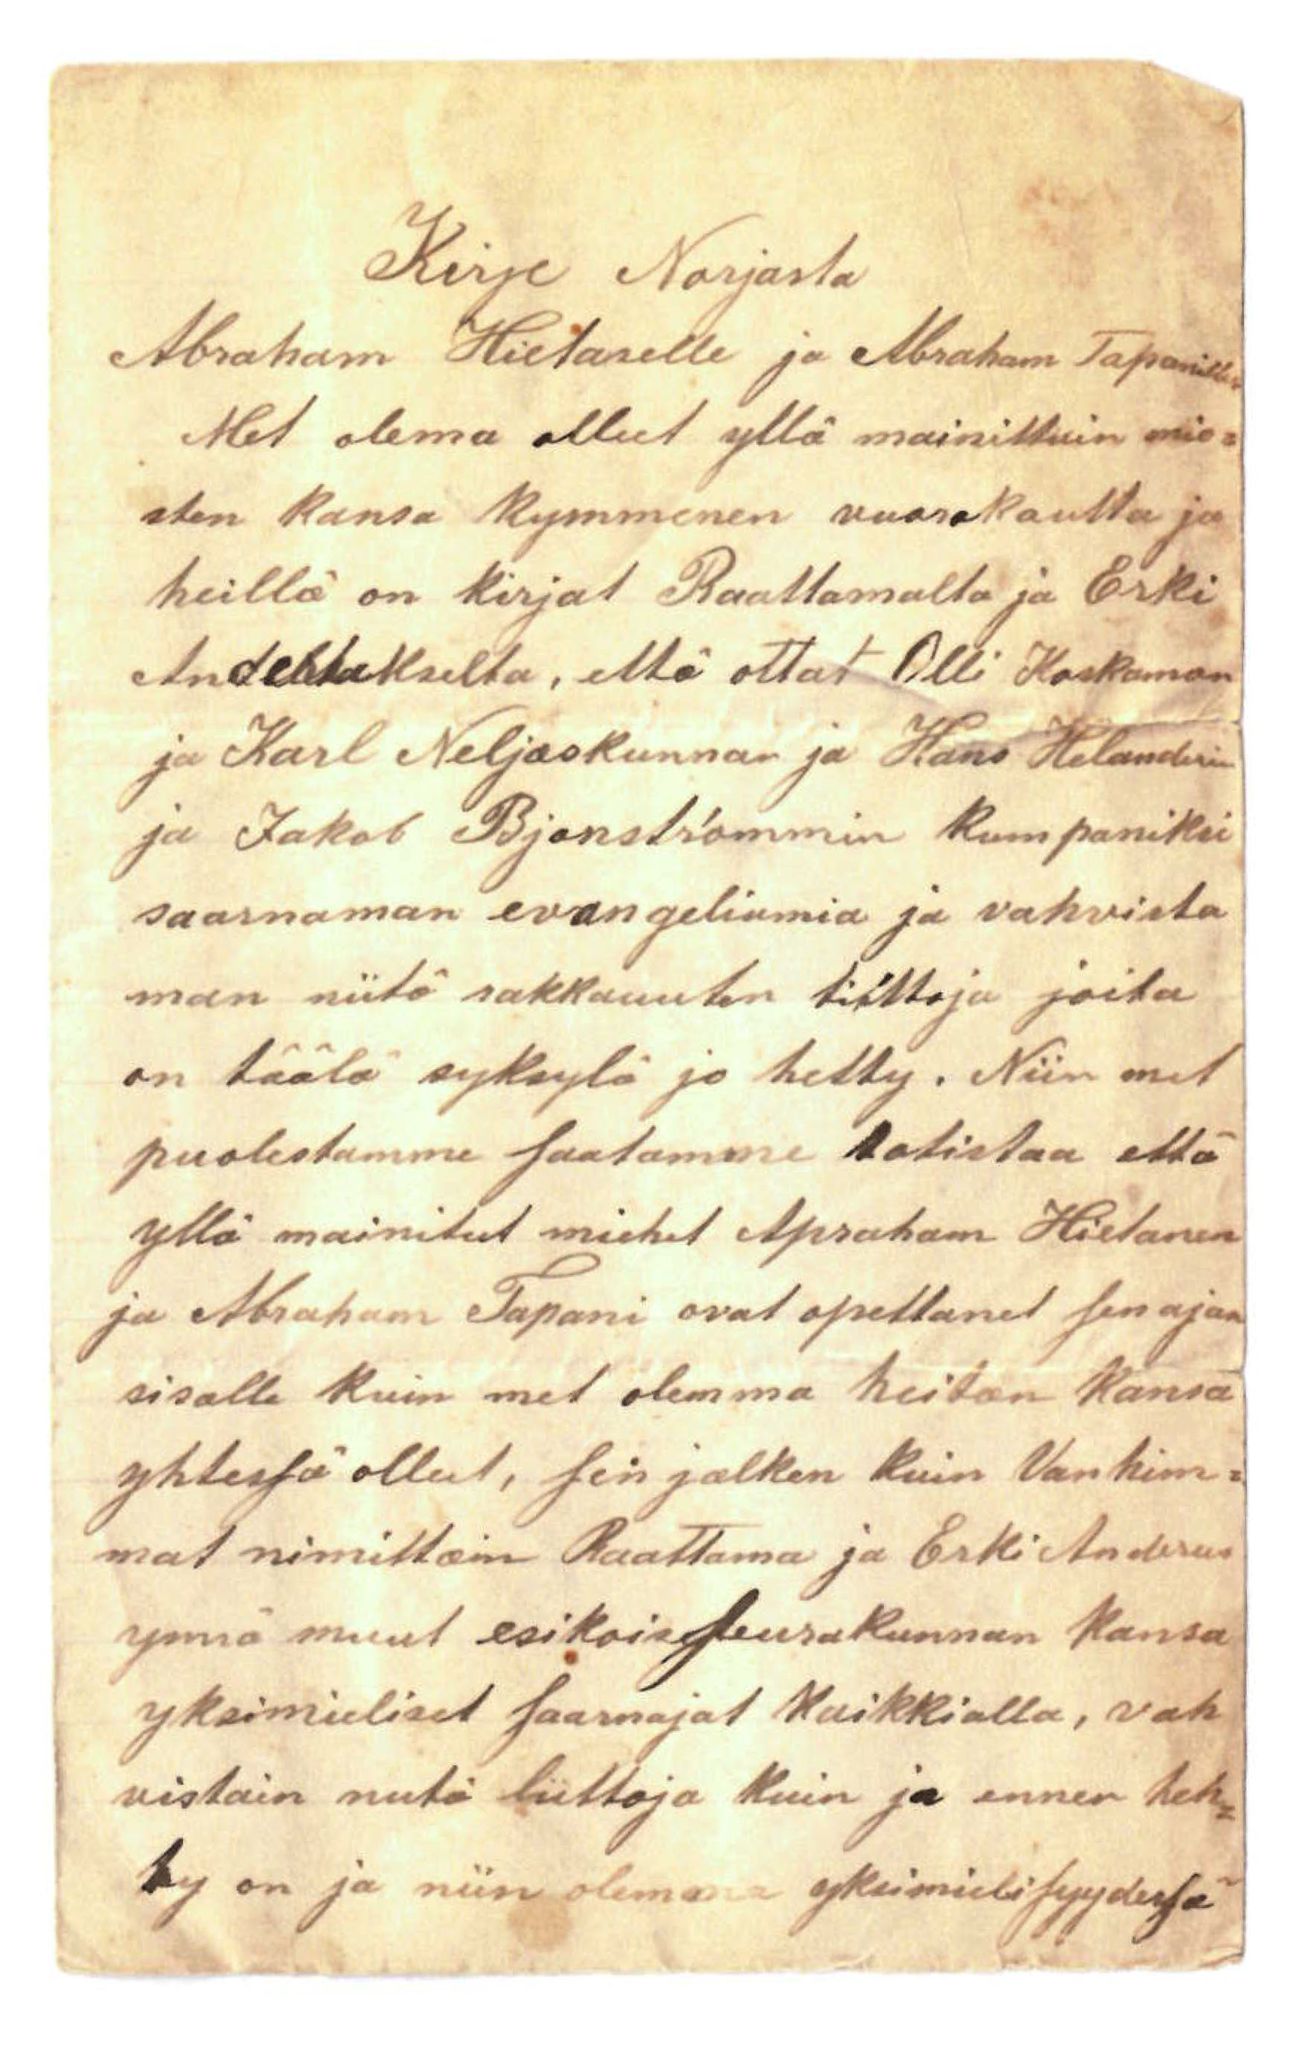 Kirje Norjasta
Abraham Hietaselle ja Abraham Tapanille
Met olema olleet yllä mainittuin mie=
sten kansa kymmenen vuorokautta ja
heillä on kirjat Raattamalta ja Erki
Anderukselta, että ottat Olli Koskaman
ja Karl Neljäskunnan ja Hans Helanderin
ja Jakob Bjonströmmin kumpaniksi
saarnaman evangeliumia ja vahvista
man niitä rakkauuten liittoja joita
on täälä syksylä jo hetty. Niin met
puolestamme saatamme totistaa että
yllä mainitut miehet Apraham Hietanen
ja Abraham Tapani ovat opettanet sen ajan
sisalle kuin met olemma heitän kansa
yhtessä olleet, sen jälken kuin Vanhim=
mat nimittäin Raattama ja Erki Anderus
ynnä muut esikoisseurakunnan kansa
yksimieliset saarnajat kaikkialla, vah
vistain niitä liittoja kuin ja ennen teh=
ty on ja niin olemme yksimielisyydessä